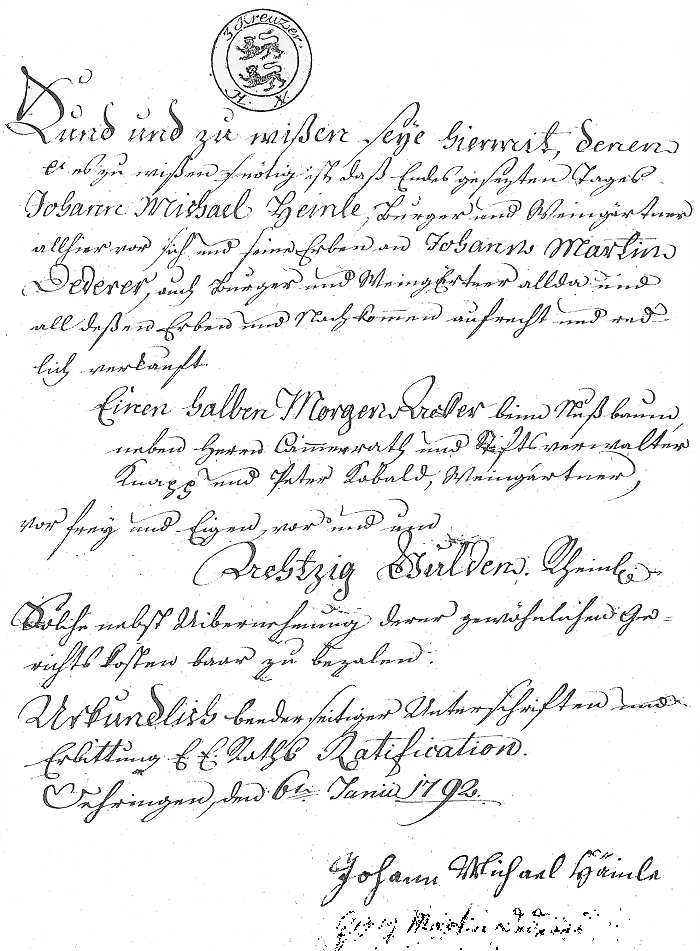 3. Kreuzer.
H. N.
Kund und zu wißen seÿe hiermit, denen
es zu wißen nötig ist, daß Endes gesezten Tages
Johann Michael Heinle, Burger und Weingärtner
allhier vor sich und seine Erben an Johann Martin
Dederer, auch Burger und Weingärtner allda und
all deßen Erben und Nachkommen aufrecht und red
lich verkauft.
Einen halben Morgen Acker beim Nußbaum,
neben Herrn Cammerrath und Stiftsverwalter
Knapp und Peter Kobald, Weingärtner,
vor frey und Eigen, vor und um
Achtzig Gulden. Rheinl.
Solche nebst Uibernehmung derer gewöhnlichen Ge=
richts kosten baar zu bezalen.
Urkundlich beederseitiger Unterschriften und
Erbittung E. E. Raths Ratification.
Oehringen, den 6ten Junii 1792.
Johann Michael Häinle
Martin